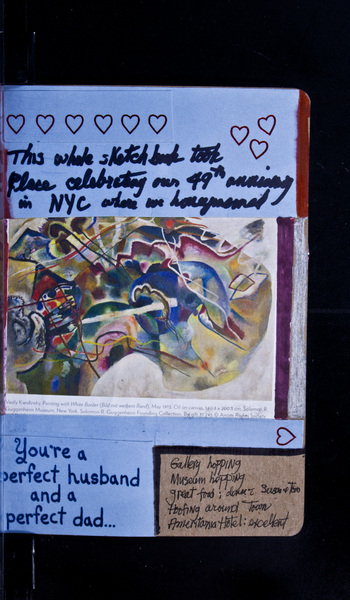 This whole sketchbook took
place celebrating our 49th anniversary
in NYC where we honeymooned
Vasily Kandinsky, Painting with White Border (Bild mit weißem Rand), May 1913. Oil on canvas,
Guggenheim Museum, New York, Solomon R. Guggenheim Founding Collection,
You're a
perfect husband
and a
perfect dad...
Gallery hopping
Museum hopping
great food;
Footing around Town
Ameritania Hotel: excellent